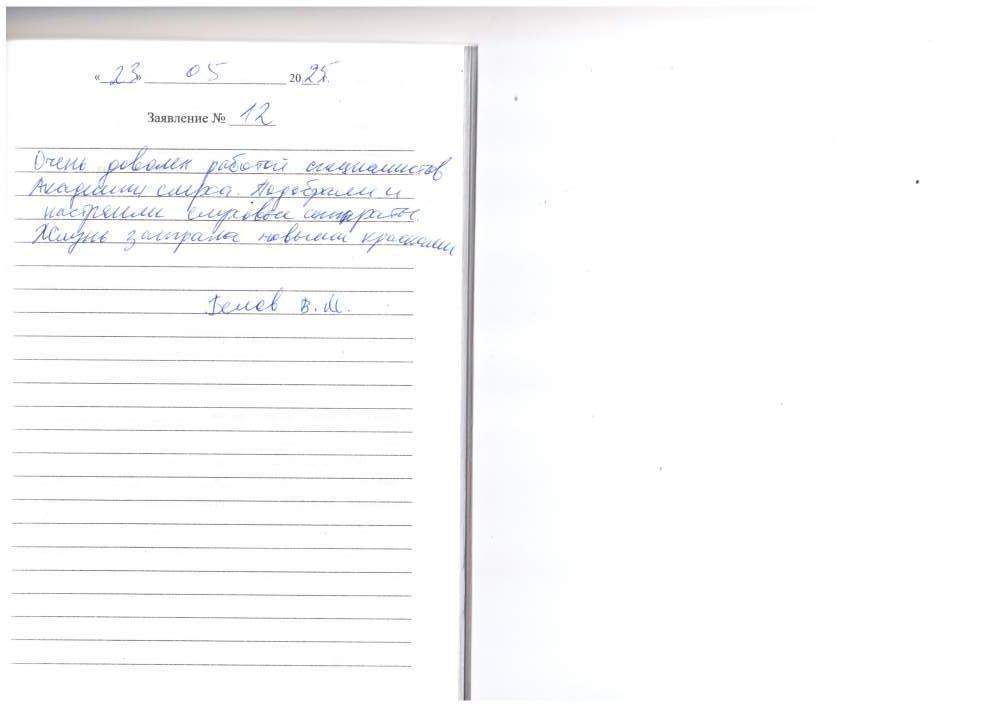 «23» 05 2025г.
Заявление № 12
Очень доволен работой специалистов
Академии слуха. Подобрали и
настроили слуховые аппараты
Жизнь заиграла новыми красками
Белов В.М.